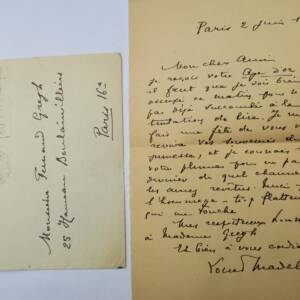 Monsieur Fernand Gregh
25 Hameau Boulainvilliers
Paris 16e
Paris 2 Juin
Mon cher Ami
Je reçois votre Age d'or
il faut que je sois bien
occupé ce matin pour n'
pas déjà succombé à la
tentation de lire. Je me
fais une fête de vous
revivre vos souvenirs de
jeunesse, et je connais
votre plume pour ne pas
deviner de quel charme
les aurez revêtus. Merci
l'hommage - trop flatteur
qui me touche
Mes respectueux
à Madame Gregh
Et bien à vous
Louis Madel